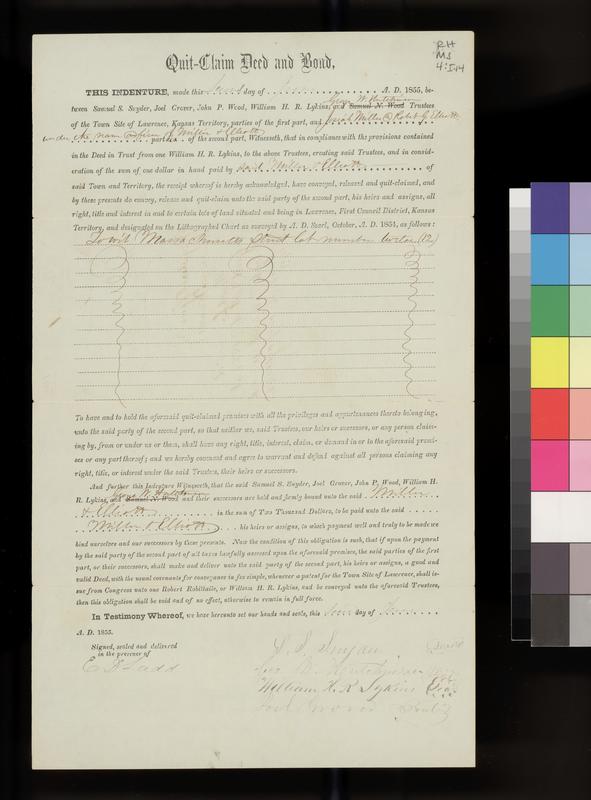 RH
MS
4:I:14
Quit-Claim Deed and Bond,
THIS INDENTURE, made this day of A. D. 1855, be-
tween Samuel S. Snyder, Joel Grover, John P. Wood, William H. R. Lykins, and Samuel N. Wood George W Hutchinson Trustees
of the Town Site of Lawrence, Kansas Territory, parties of the first part, and Josiah Miller & Robt G. Elliott
under the name & firm of Miller & Elliott part of the second part, Witnesseth, that in compliance with the provisions contained
in the Deed in Trust from one William H. R. Lykins, to the above Trustees, creating said Trustees, and in consid-
eration of the sum of one dollar in hand paid by said Miller & Elliott of
said Town and Territory, the receipt whereof is hereby acknowledged, have conveyed, released and quit-claimed, and
by these presents do convey, release and quit-claim unto the said party of the second part, his heirs and assigns, all
right, title and interest in and to certain lots of land situated and being in Lawrence, First Council District, Kansas
Territory, and designated on the Lithographed Chart as surveyed by A. D. Searl, October, A. D. 1854, as follows:
To wit Massachusetts Street lot number twelve (12)
To have and to hold the aforesaid quit-claimed premises with all the privileges and appurtenances thereto belonging,
unto the said party of the second part, so that neither we, said Trustees, our heirs or successors, or any person claim-
ing by, from or under us or them, shall have any right, title, interest, claim, or demand in or to the aforesaid premi-
ses or any part thereof; and we hereby covenant and agree to warrant and defend against all persons claiming any
right, title, or interest under the said Trustees, their heirs or successors.
And further this Indenture Witnesseth, that the said Samuel S. Snyder, Joel Grover, John P. Wood, William H.
R. Lykins, and Samuel N. Wood George W. Hutchinson and their successors are held and firmly bound unto the said Miller
& Elliott in the sum of Ten Thousand Dollars, to be paid unto the said
Miller & Elliott his heirs or assigns, to which payment well and truly to be made we
bind ourselves and our successors by these presents. Now the condition of this obligation is such, that if upon the payment
by the said party of the second part of all taxes lawfully assessed upon the aforesaid premises, the said parties of the first
part, or their successors, shall make and deliver unto the said party of the second part, his heirs or assigns, a good and
valid Deed, with the usual covenants for conveyance in fee simple, whenever a patent for the Town Site of Lawrence, shall is-
sue from Congress unto one Robert Robitaille, or William H. R. Lykins, and be conveyed unto the aforesaid Trustees,
then this obligation shall be void and of no effect, otherwise to remain in full force.
In Testimony Whereof, we have hereunto set our hands and seals, this day of
A. D. 1855.
Signed, sealed and delivered
in the presence of
E D Ladd
S. S. Snyder
Geo W. Hutchinson
William H. R Lykins
Joel Grover